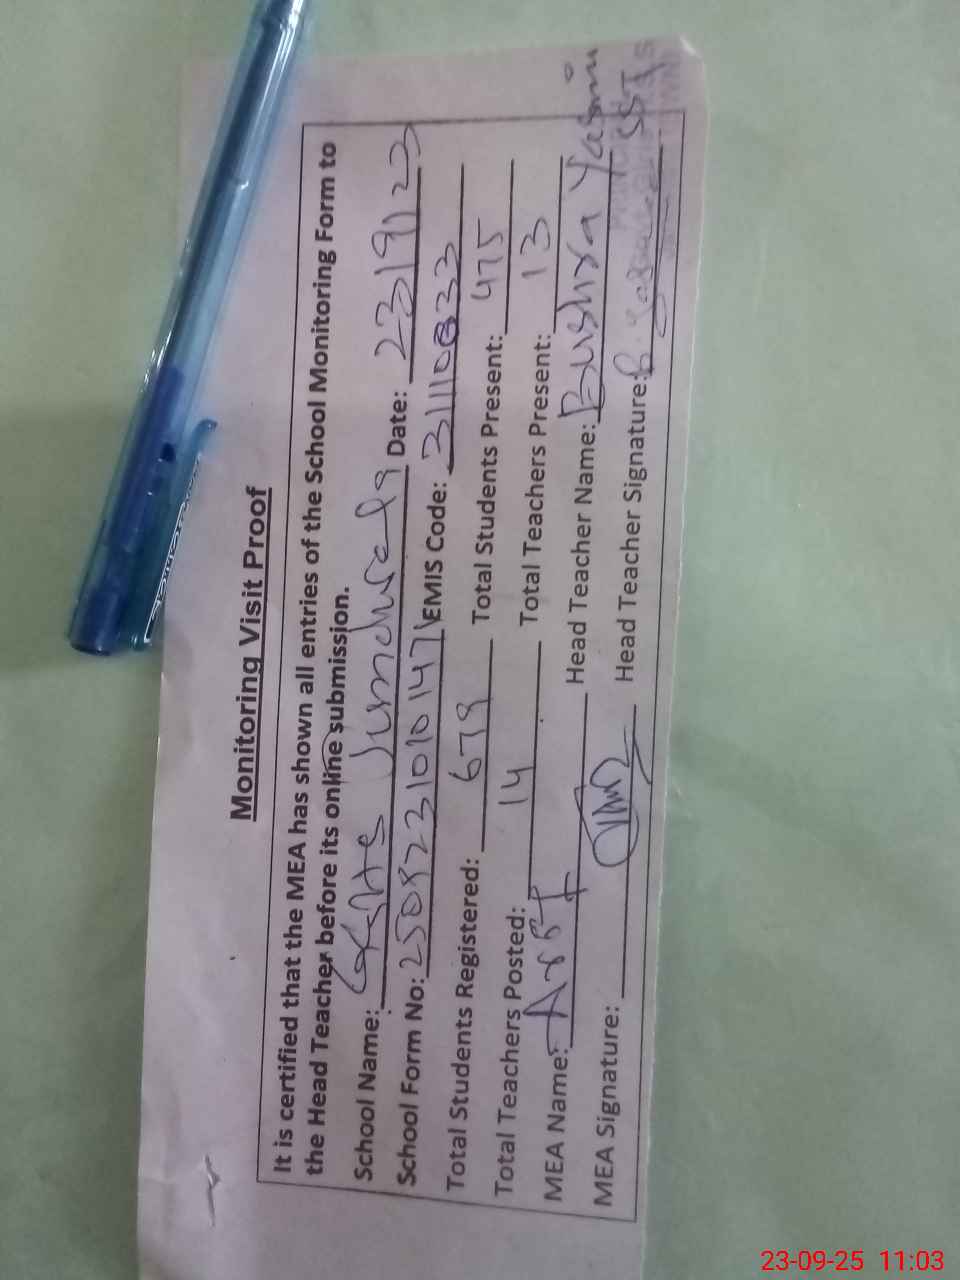 Monitoring Visit Proof
It is certified that the MEA has shown all entries of the School Monitoring Form to
the Head Teacher before its online submission.
School Name: GGHS Jumdwala Date: 23/9/22
School Form No: 25082310101471 EMIS Code: 31110833
Total Students Registered: 679 Total Students Present: 475
Total Teachers Posted: 14 Total Teachers Present: 13
MEA Name: Arif Head Teacher Name: Bushra Yasmin
MEA Signature: Head Teacher Signature: B.
SST
23-09-25 11:03